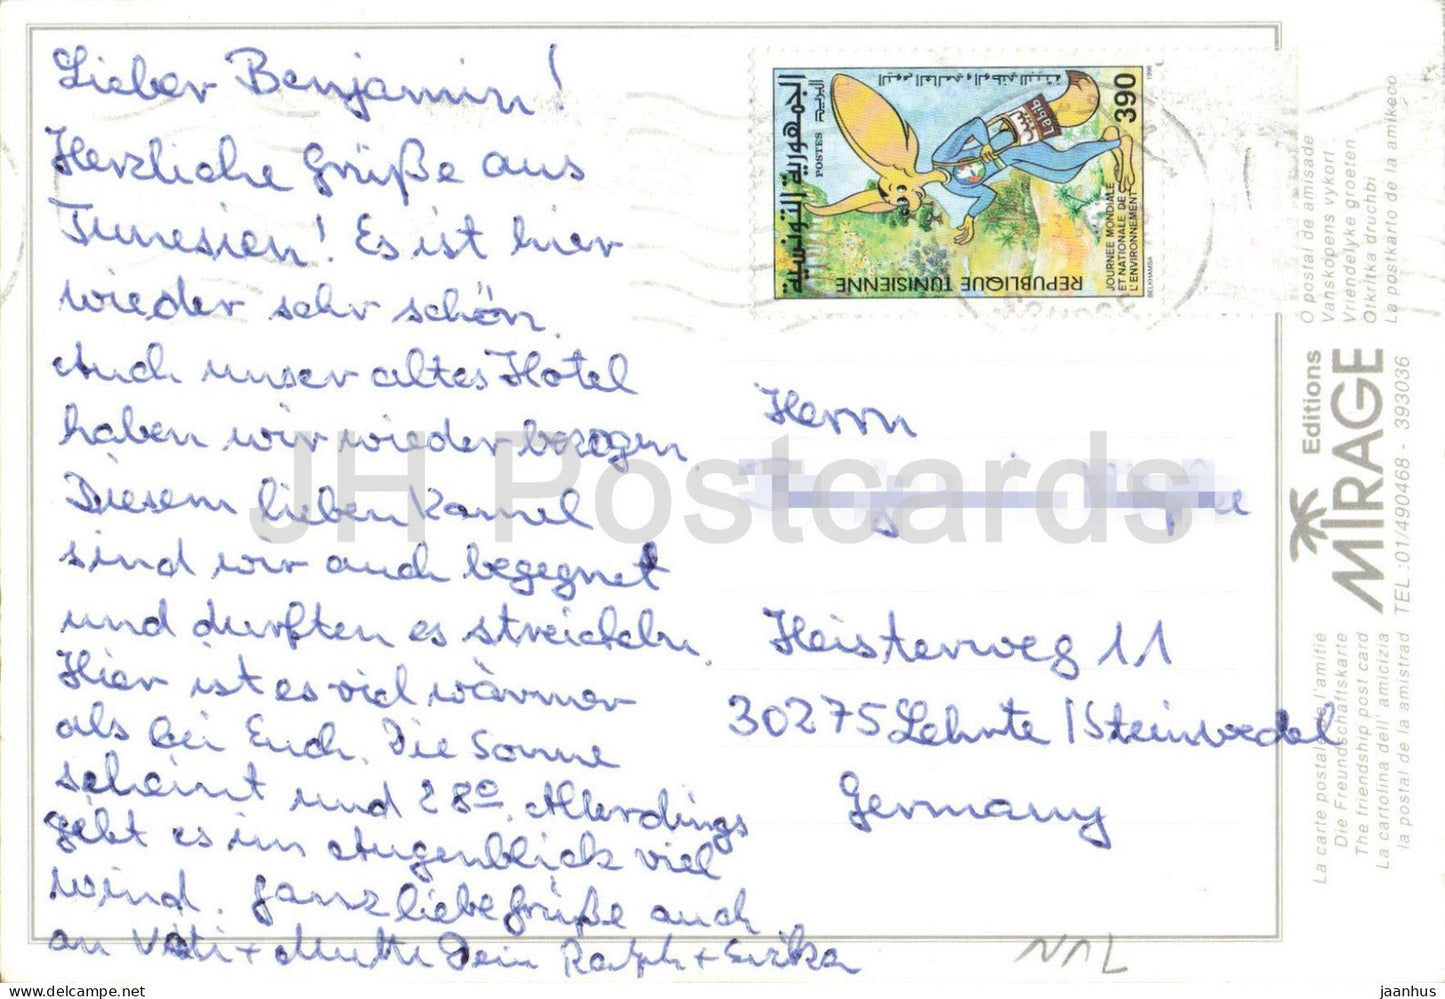 Lieber Benjamin!
Herzliche Grüße aus
Tunesien! Es ist hier
wieder sehr schön.
Auch unser altes Hotel
haben wir wieder bezogen
Diesem lieben Kamel
sind wir auch begegnet
und durften es streicheln.
Hier ist es viel wärmer
als bei Euch. Die Sonne
scheint und 28°. Allerdings
gibt es im Augenblick viel
Wind. Ganz liebe Grüße auch
an Vati + Mutti Dein Ralph + Erika
الجمهورية التونسية
البريد
POSTES
اليوم العالمي والوطني للبيئة
Labib
390
1996
JOURNEE MONDIALE
ET NATIONALE DE
L'ENVIRONNEMENT
REPUBLIQUE TUNISIENNE
BELKHAMSA
Herrn
Heisterweg 11
30275 Lehrte / Steinwedel
Germany
O postal de amisade
Vanskopens vykort
Vriendelyke groeten
Otkritka druchbi
La postkarto de la amikeco
Editions
MIRAGE
TEL :01/490468 - 393036
La carte postale de l'amitie
Die Freundschaftskarte
The friendship post card
La cartolina dell' amicizia
la postal de la amistrad
JH Postcards
https://jhpostcards.com
jaanhus